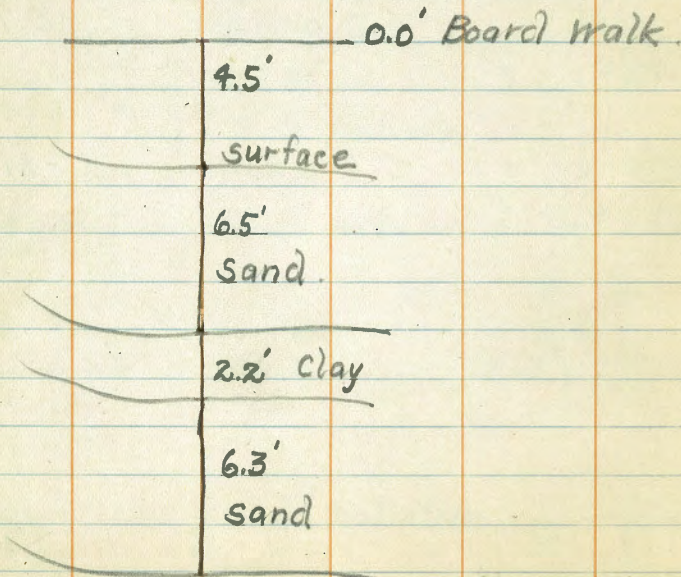 0.0' Board walk.
4.5'
surface
6.5'
Sand.
2.2' Clay
6.3'
sand